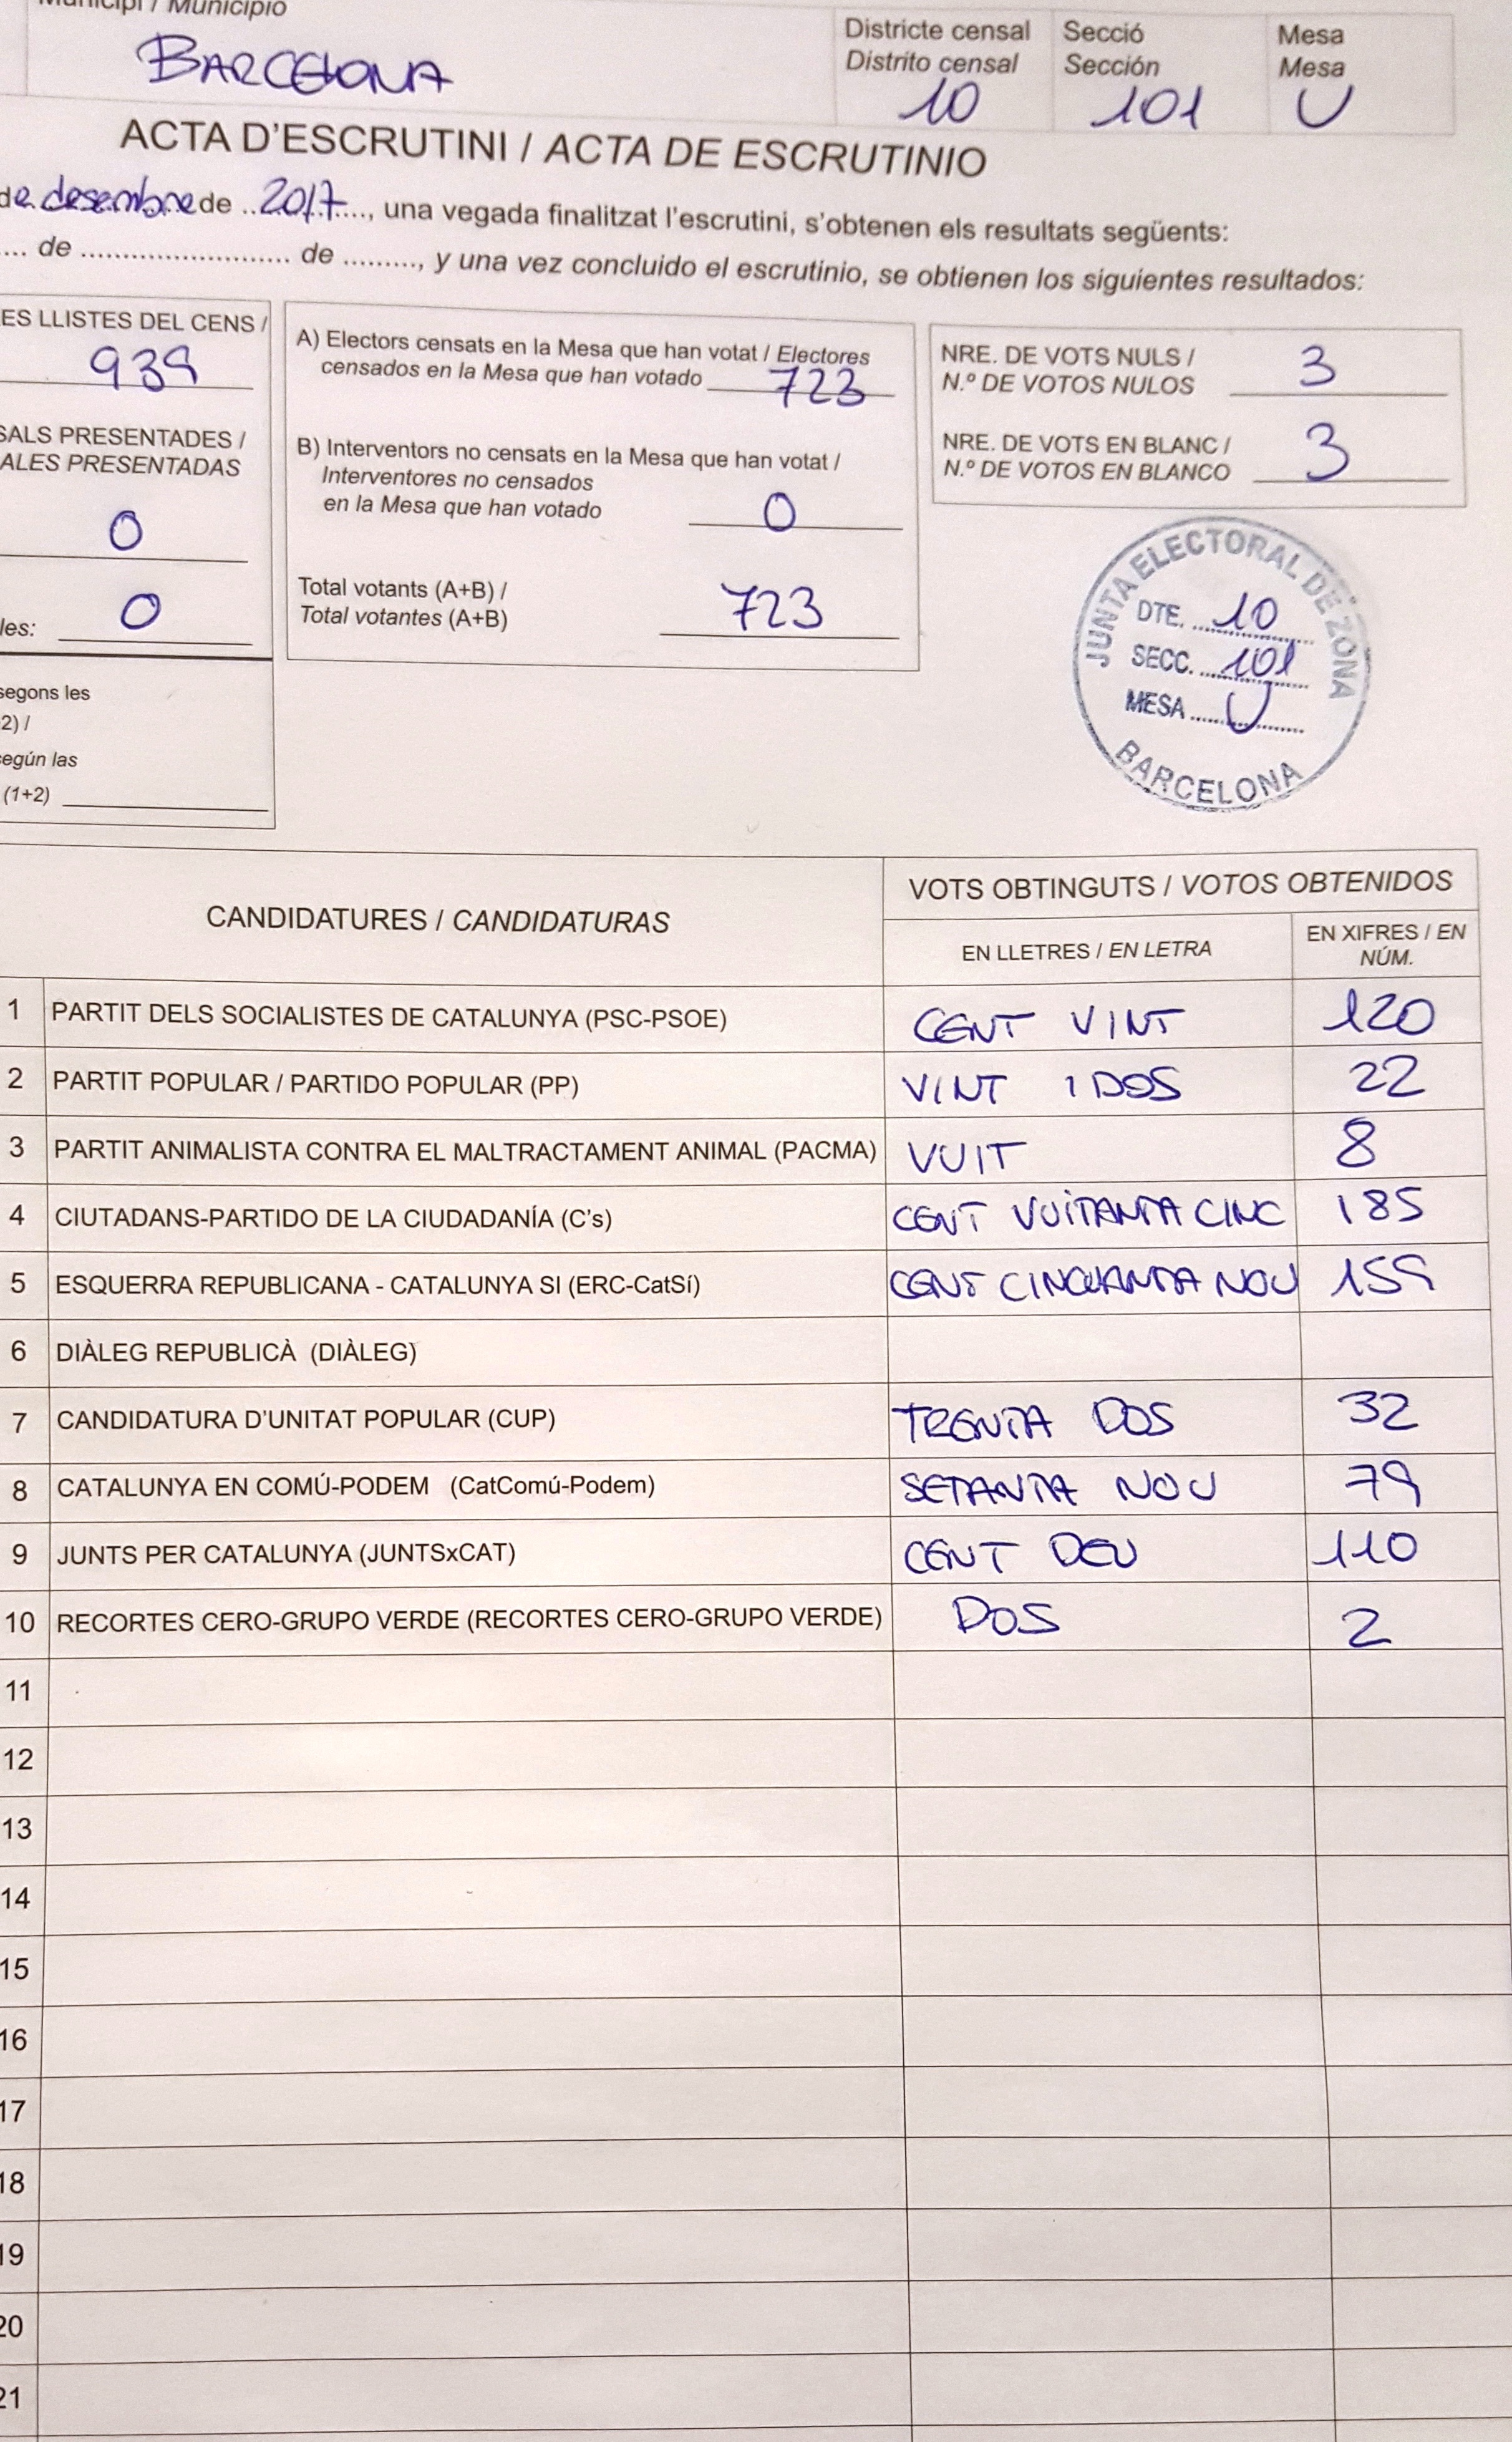 Municipi / Municipio
BARCELONA
Districte censal
Distrito censal
10
Secció
Sección
101
Mesa
Mesa
U
ACTA D'ESCRUTINI / ACTA DE ESCRUTINIO
de desembre de 2017, una vegada finalitzat l'escrutini, s'obtenen els resultats següents:
.... de .......................... de ........., y una vez concluido el escrutinio, se obtienen los siguientes resultados:
ES LLISTES DEL CENS /
939
SALS PRESENTADES /
ALES PRESENTADAS
0
les: 0
segons les
2) /
según las
(1+2)
A) Electors censats en la Mesa que han votat / Electores
censados en la Mesa que han votado 723
B) Interventors no censats en la Mesa que han votat /
Interventores no censados
en la Mesa que han votado 0
Total votants (A+B) /
Total votantes (A+B) 723
NRE. DE VOTS NULS /
N.º DE VOTOS NULOS 3
NRE. DE VOTS EN BLANC /
N.º DE VOTOS EN BLANCO 3
JUNTA ELECTORAL DE ZONA
DTE. 10
SECC. 101
MESA U
BARCELONA
CANDIDATURES / CANDIDATURAS
VOTS OBTINGUTS / VOTOS OBTENIDOS
EN LLETRES / EN LETRA
EN XIFRES / EN
NÚM.
1 PARTIT DELS SOCIALISTES DE CATALUNYA (PSC-PSOE) CENT VINT 120
2 PARTIT POPULAR / PARTIDO POPULAR (PP) VINT I DOS 22
3 PARTIT ANIMALISTA CONTRA EL MALTRACTAMENT ANIMAL (PACMA) VUIT 8
4 CIUTADANS-PARTIDO DE LA CIUDADANÍA (C's) CENT VUITANTA CINC 185
5 ESQUERRA REPUBLICANA - CATALUNYA SI (ERC-CatSí) CENT CINQUANTA NOU 159
6 DIÀLEG REPUBLICÀ (DIÀLEG)
7 CANDIDATURA D'UNITAT POPULAR (CUP) TRENTA DOS 32
8 CATALUNYA EN COMÚ-PODEM (CatComú-Podem) SETANTA NOU 79
9 JUNTS PER CATALUNYA (JUNTSxCAT) CENT DEU 110
10 RECORTES CERO-GRUPO VERDE (RECORTES CERO-GRUPO VERDE) DOS 2
11
12
13
14
15
16
17
18
19
20
21